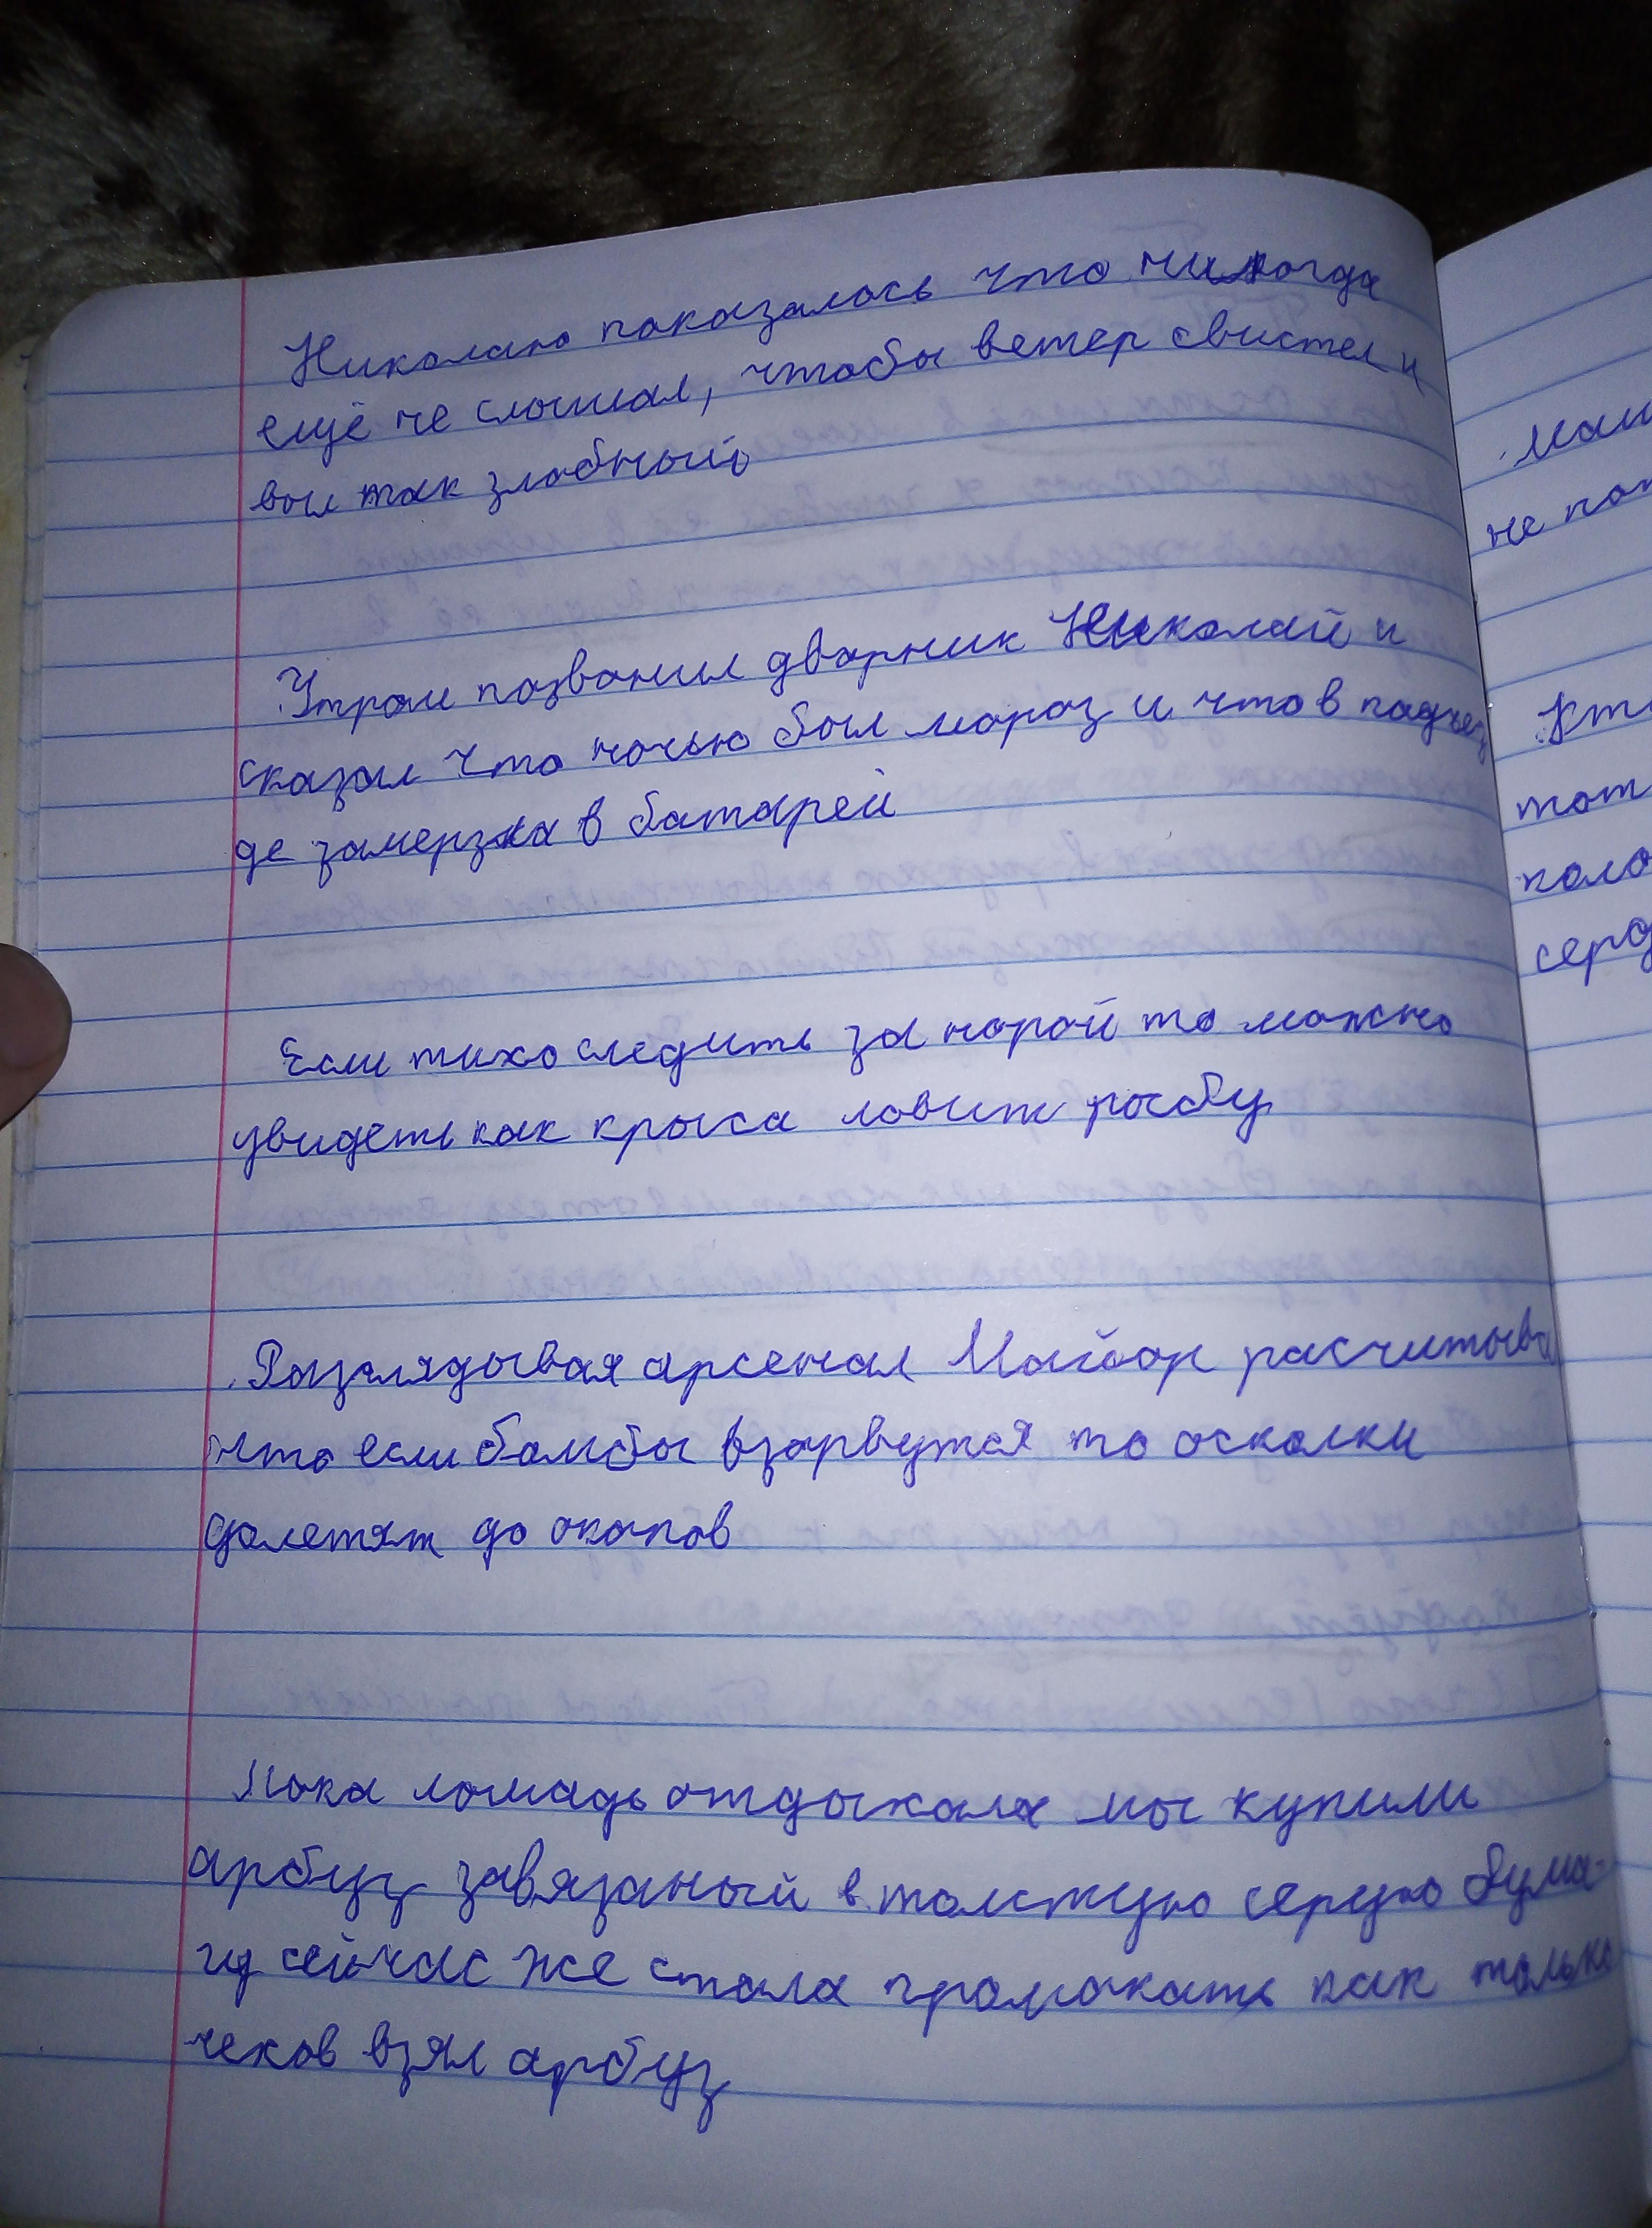 Николаю показалось что никогда
ещё не слышал, чтобы ветер свистел и
выл так злобный
Утром позвонил дворник Николай и
сказал что ночью был мороз и что в подъез
де замерзла в батарей
Если тихо следить за норой то можно
увидеть как крыса ловит рыбу
Разглядывая арсенал Майор расчитыва
что если бомбы взорвутся то осколки
долетят до окопов
Пока лошадь отдыхала мы купили
арбуз завязаный в толстую серую бума-
гу сейчас же стала громокать как только
чеков взял арбуз
не
тот